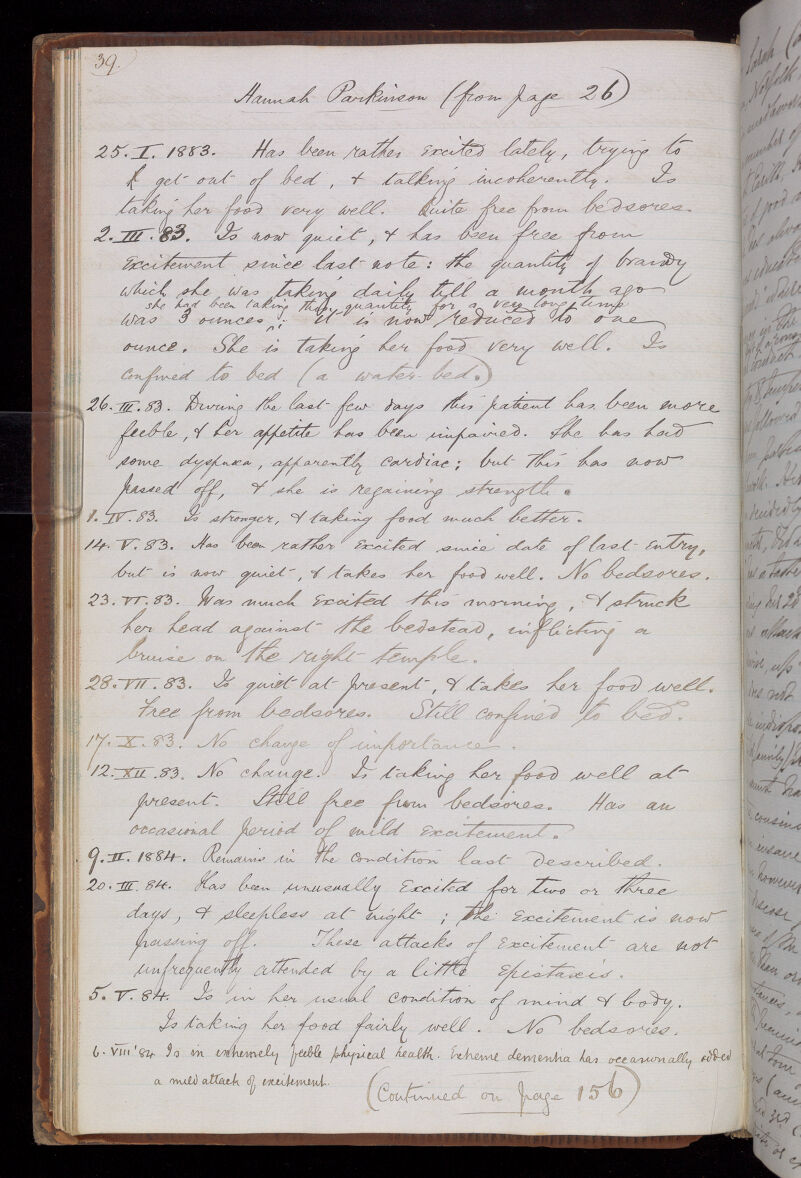 39.
Hannah Parkinson (from page 26)
25. I. 1883. Has been rather excited lately, trying to
get out of bed, & talking incoherently. Is
taking her food very well. Quite free from bedsores.
2. III. 83. Is now quiet, & has been free from
excitement since last note: the quantity of brandy
which she was taking daily till a month ago
she had been taking this quantity for a very long time
was 3 ounces ^; it is now reduced to one
ounce. She is taking her food very well. Is
confined to bed (a water-bed.)
26. III. 83. During the last few days this patient has been more
feeble, & her appetite has been impaired. She has had
some dyspnœa, apparently cardiac; but this has now
passed off, & she is regaining strength.
1. IV. 83. Is stronger, & taking food much better.
14. V. 83. Has been rather excited since date of last entry,
but is now quiet, & takes her food well. No bedsores.
23. VI. 83. Was much excited this morning, & struck
her head against the bedstead, inflicting a
bruise on the right temple.
28. VII. 83. Is quiet at present, & takes her food well.
Free from bedsores. Still confined to bed.
17. X. 83. No change of importance.
12. XII. 83. No change. Is taking her food well at
present. Still free from bedsores. Has an
occasional period of mild excitement.
9. II. 1884. Remains in the condition last described.
20. III. 84. Has been unusually excited for two or three
days, & sleepless at night; the excitement is now
passing off. These attacks of excitement are not
unfrequently attended by a little epistaxis.
5. V. 84. Is in her usual condition of mind & body.
Is taking her food fairly well. No bedsores.
6. VIII '84 Is in extremely feeble physical health. Extreme dementia has occasionally added
a mild attack of excitement.
(Continued on page 156)